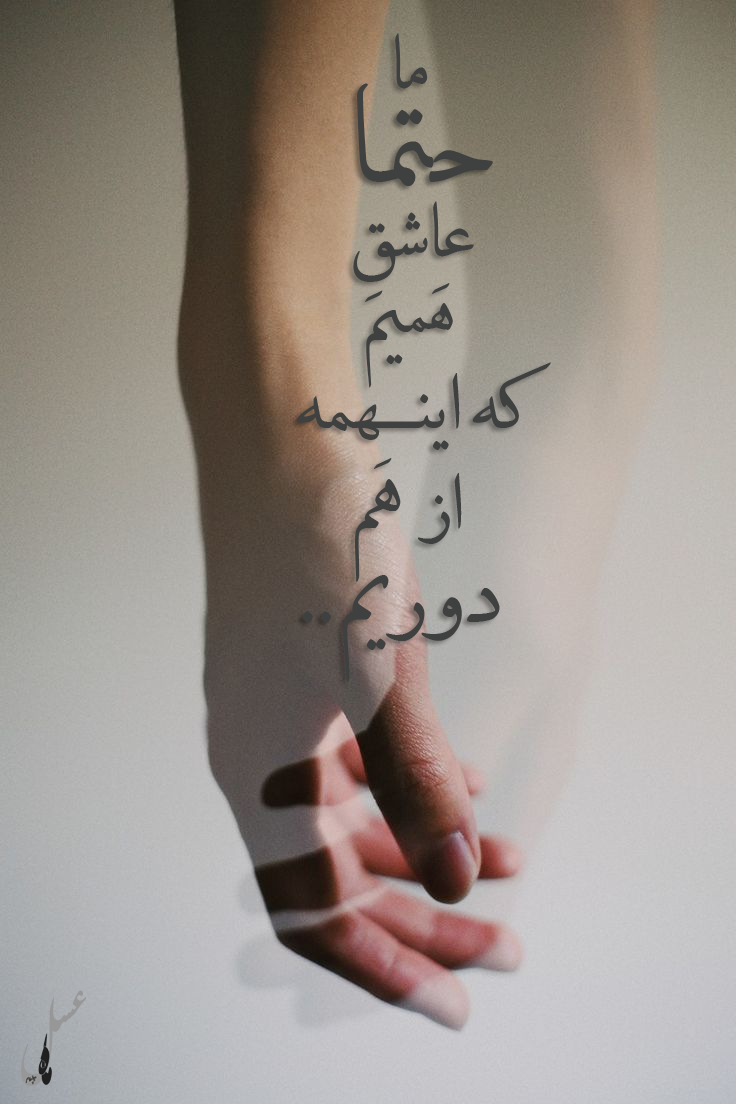 ما
حتما
عاشق
هَمیمَ
که اینـهمه
از هَم
دوریم..